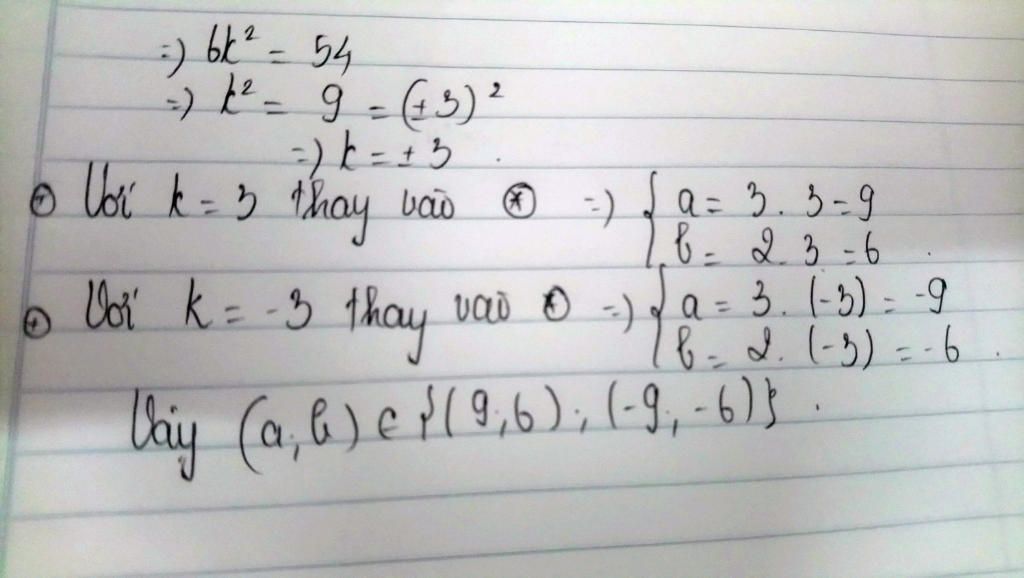 =) 6k² = 54
=) k² = 9 = (±3)²
=) k = ±3 .
⊕ Với k = 3 thay vào ⊛ =) { a = 3 . 3 = 9
b = 2 . 3 = 6 .
⊕ Với k = -3 thay vào ⊛ =) { a = 3 . (-3) = -9
b = 2 . (-3) = -6 .
Vậy (a,b) ∈ {(9;6) ; (-9,-6)} .